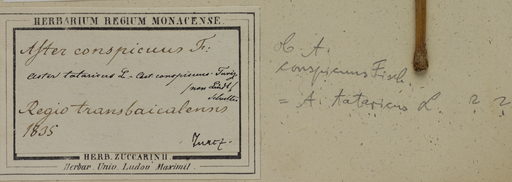 HERBARIUM REGIUM MONACENSE.
Aster conspicuus F:
Aster tataricus L. - Ast conspicuus Turcz
(non Lindl)
Regio transbaicalensis
1835
Turcz.
HERB. ZUCCARINII
Herbar. Univ. Ludov. Maximil.
A.
conspicuus Fisch
= A. tataricus L. ? ?